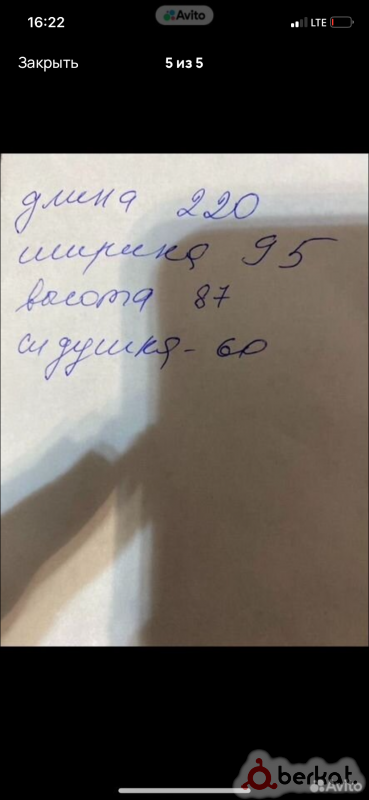 16:22
Avito
LTE
Закрыть
5 из 5
длина 220
ширина 95
высота 87
сидушка - 60
berkat.
Avito